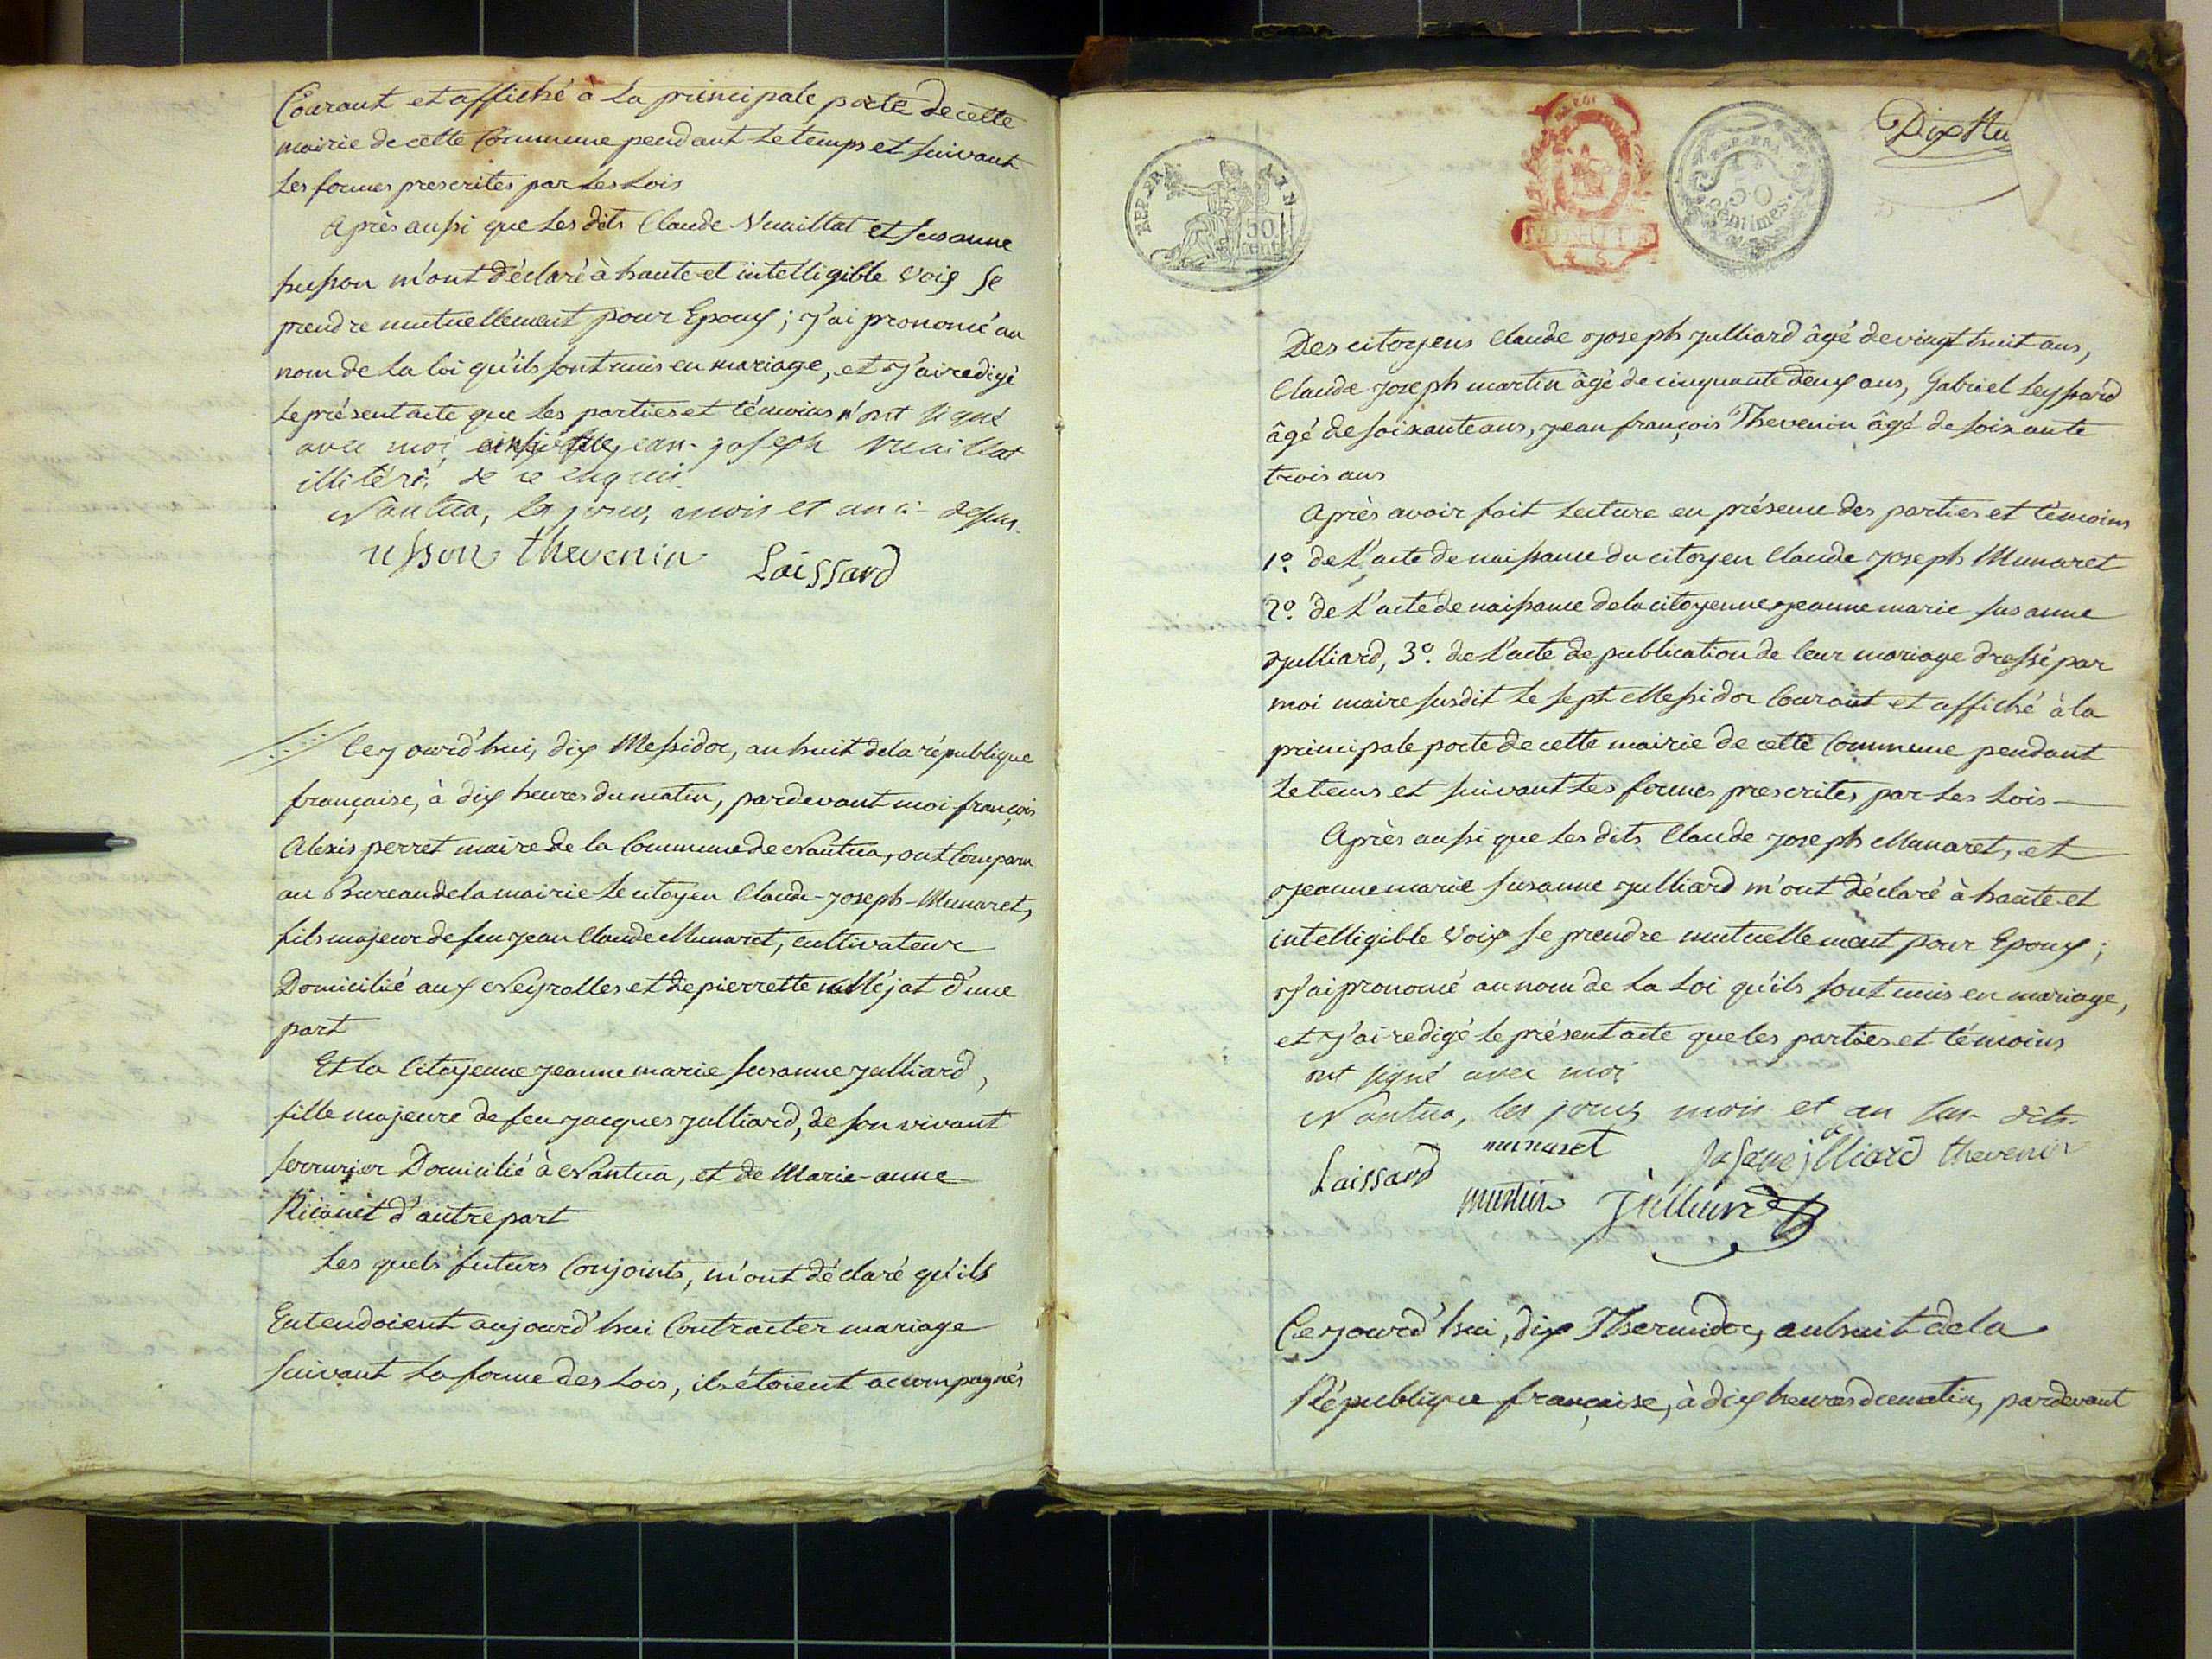 Courant et affiché à la principale porte de cette
mairie de cette Commune pendant le temps et suivant
les formes prescrites par les Lois
Après aussi que les dits Claude Vuaillat et susanne
husson m'ont déclaré à haute et intelligible voix se
prendre mutuellement pour Epoux ; j'ai prononcé au
nom de la loi qu'ils sont unis en mariage, et j'ai redigé
le présent acte que les parties et témoins n'ont signé
avec moi, jean-joseph vuaillat
illitéré, de ce enquis.
Nantua, les jour, mois et an ci-dessus.
usson thevenin Laissard
Cejourd'hui, dix Messidor, an huit de la république
française, à dix heures du matin, pardevant moi françois
Alexis perret maire de la Commune de Nantua, ont Comparu
au Bureau de la mairie le citoyen Claude-joseph-Munaret,
fils majeur de feu jean Claude Munaret, cultivateur
Domicilié aux Neyrolles et de pierrette Méjat d'une
part
Et la Citoyenne jeanne marie susanne julliard,
fille majeure de feu jacques julliard, de son vivant
serrurier Domicilié à Nantua, et de Marie-anne
d'autre part
Les quels futurs Conjoints, m'ont déclaré qu'ils
Entendoient aujourd'hui Contracter mariage
suivant la forme des Lois, ils étoient accompagnés
REP. FRA
50
cent.
REP. FRA
50
centimes
Dix hu
Des citoyens Claude joseph julliard âgé de vingt huit ans,
Claude joseph martin âgé de cinquante deux ans, Gabriel Leyssard
âgé de soixante ans, jean françois Thevenin âgé de soixante
trois ans
Après avoir fait lecture en présence des parties et témoins
1º. de l'acte de naissance du citoyen Claude joseph Munaret
2º. de l'acte de naissance de la citoyenne jeanne marie susanne
julliard, 3º. de l'acte de publication de leur mariage dressé par
moi maire susdit le sept Messidor Courant et affiché à la
principale porte de cette mairie de cette Commune pendant
le tems et suivant les formes prescrites par les Lois —
Après aussi que les dits Claude joseph Munaret, et
jeanne marie susanne julliard m'ont déclaré à haute et
intelligible voix se prendre mutuellement pour Epoux ;
j'ai prononcé au nom de la Loi qu'ils sont unis en mariage,
et j'ai redigé le présent acte que les parties et témoins
ont signé avec moi
Nantua, les jour, mois et an sus-dits.
munaret thevenin
Laissard
martin julliard
Cejourd'hui, dix Thermidor, an huit de la
République française, à dix heures du matin, pardevant